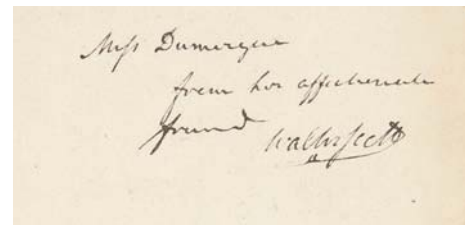 Miss Dumergue
from her affectionate
friend
Walter Scott